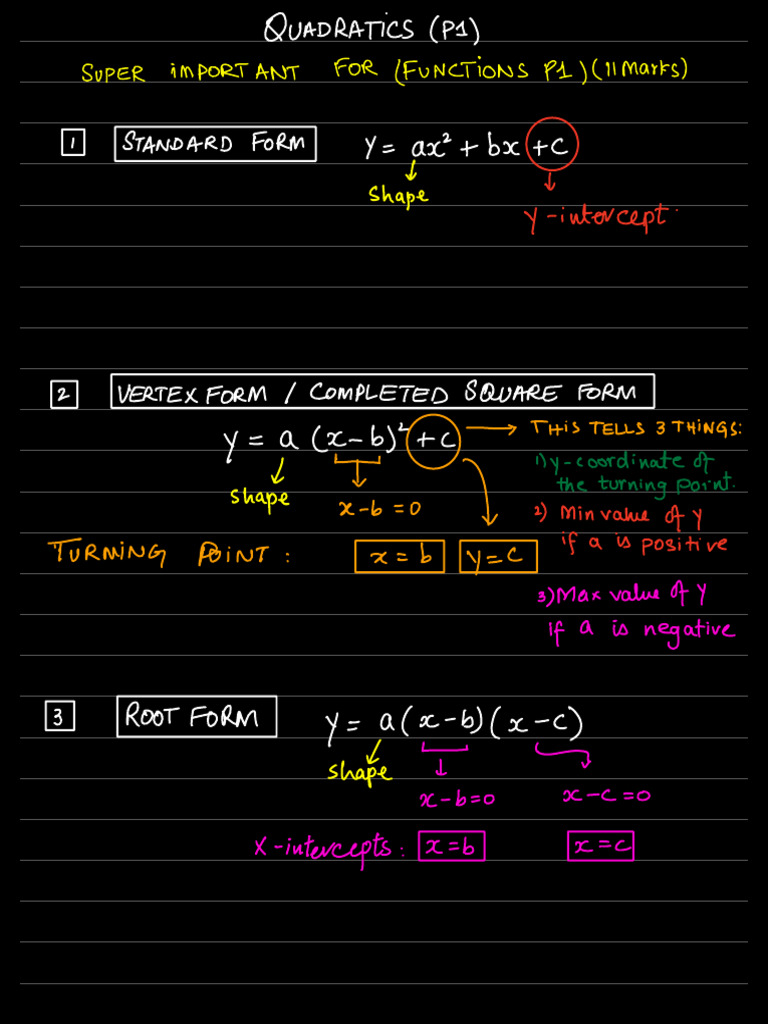 QUADRATICS (P1)
SUPER IMPORTANT FOR (FUNCTIONS P1) (11 Marks)
1 STANDARD FORM y = ax² + bx + c
shape
y-intercept.
2 VERTEX FORM / COMPLETED SQUARE FORM
y = a (x-b)² + c → THIS TELLS 3 THINGS:
1) y-coordinate of
the turning point.
shape
x-b = 0
2) Min value of y
if a is positive
TURNING POINT : x = b y = c
3) Max value of y
if a is negative
3 ROOT FORM y = a(x-b)(x-c)
shape
x-b=0 x-c=0
X-intercepts: x=b x=c